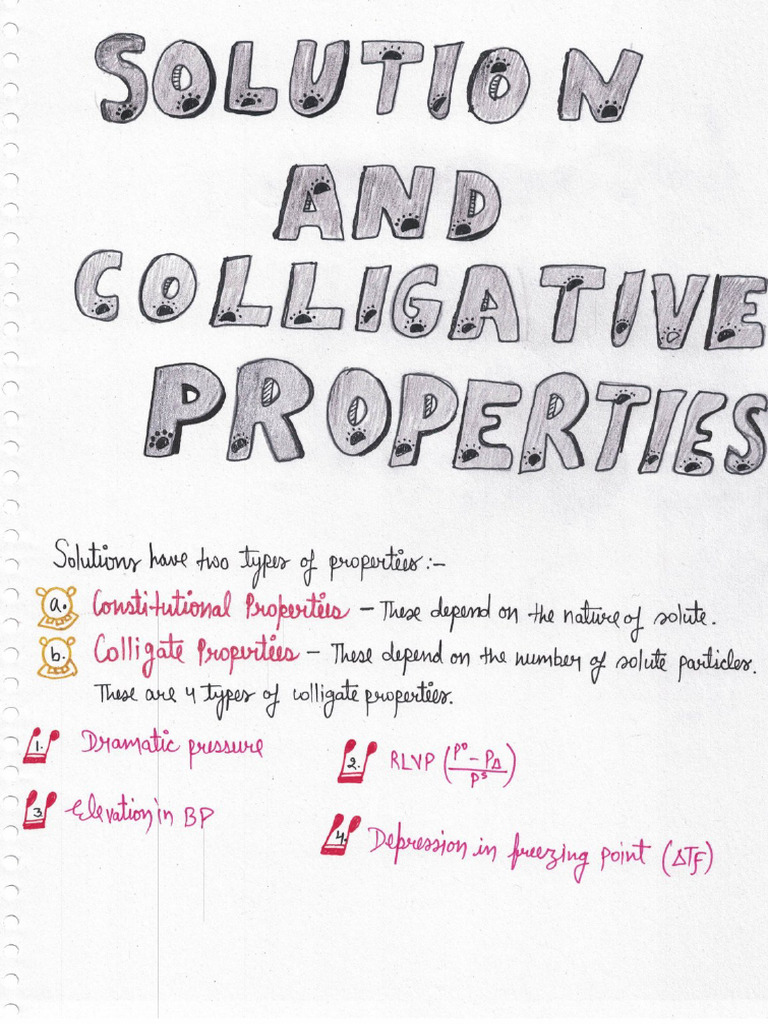 SOLUTION
AND
COLLIGATIVE
PROPERTIES
Solutions have two types of properties:-
a. Constitutional Properties – These depend on the nature of solute.
b. Colligate Properties – These depend on the number of solute particles.
These are 4 types of colligate properties.
1. Dramatic pressure
2. RLVP (P° – PA / Ps)
3. Elevation in BP
4. Depression in freezing point (ΔTf)